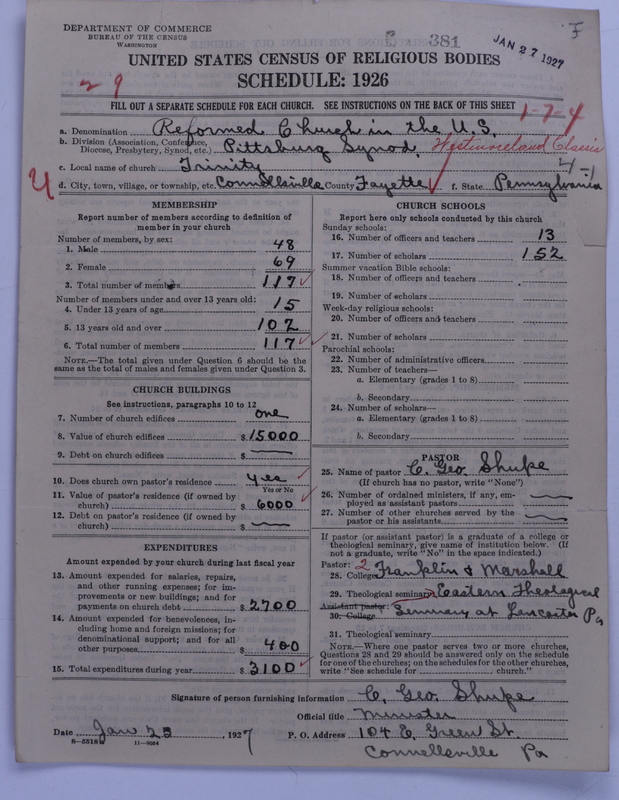 DEPARTMENT OF COMMERCE
BUREAU OF THE CENSUS
WASHINGTON
381
JAN 27 1927
F
UNITED STATES CENSUS OF RELIGIOUS BODIES
SCHEDULE: 1926
29
FILL OUT A SEPARATE SCHEDULE FOR EACH CHURCH. SEE INSTRUCTIONS ON THE BACK OF THIS SHEET
1-7-4
a. Denomination Reformed Church in the U.S.
b. Division (Association, Conference, Diocese, Presbytery, Synod, etc.) Pittsburg Synod, Westmoreland Classis
c. Local name of church Trinity
4-1
d. City, town, village, or township, etc. Connellsville County Fayette f. State Pennsylvania
MEMBERSHIP
Report number of members according to definition of
member in your church
Number of members, by sex:
1. Male 48
2. Female 69
3. Total number of members 117
Number of members under and over 13 years old:
4. Under 13 years of age 15
5. 13 years old and over 102
6. Total number of members 117
NOTE.—The total given under Question 6 should be the
same as the total of males and females given under Question 3.
CHURCH BUILDINGS
See instructions, paragraphs 10 to 12
7. Number of church edifices one
8. Value of church edifices $ 15000
9. Debt on church edifices $
10. Does church own pastor's residence yes
Yes or No
11. Value of pastor's residence (if owned by
church) $ 6000
12. Debt on pastor's residence (if owned by
church) $
EXPENDITURES
Amount expended by your church during last fiscal year
13. Amount expended for salaries, repairs,
and other running expenses; for im-
provements or new buildings; and for
payments on church debt $ 2700
14. Amount expended for benevolences, in-
cluding home and foreign missions; for
denominational support; and for all
other purposes $ 400
15. Total expenditures during year $ 3100
CHURCH SCHOOLS
Report here only schools conducted by this church
Sunday schools:
16. Number of officers and teachers 13
17. Number of scholars 152
Summer vacation Bible schools:
18. Number of officers and teachers
19. Number of scholars
Week-day religious schools:
20. Number of officers and teachers
21. Number of scholars
Parochial schools:
22. Number of administrative officers
23. Number of teachers—
a. Elementary (grades 1 to 8)
b. Secondary
24. Number of scholars—
a. Elementary (grades 1 to 8)
b. Secondary
PASTOR
25. Name of pastor C. Geo. Shupe
(If church has no pastor, write "None")
26. Number of ordained ministers, if any, em-
ployed as assistant pastors
27. Number of other churches served by the
pastor or his assistants
If pastor (or assistant pastor) is a graduate of a college or
theological seminary, give name of institution below. (If
not a graduate, write "No" in the space indicated.)
Pastor: 2
28. College Franklin & Marshall
29. Theological seminary Eastern Theological
Assistant pastor:
30. College Seminary at Lancaster Pa
31. Theological seminary
NOTE.—Where one pastor serves two or more churches,
Questions 28 and 29 should be answered only on the schedule
for one of the churches; on the schedules for the other churches,
write "See schedule for church."
Signature of person furnishing information C. Geo. Shupe
Official title Minister
Date Jan 25, 1927 P. O. Address 104 E. Green St.
8-5518 11-9054
Connellsville Pa